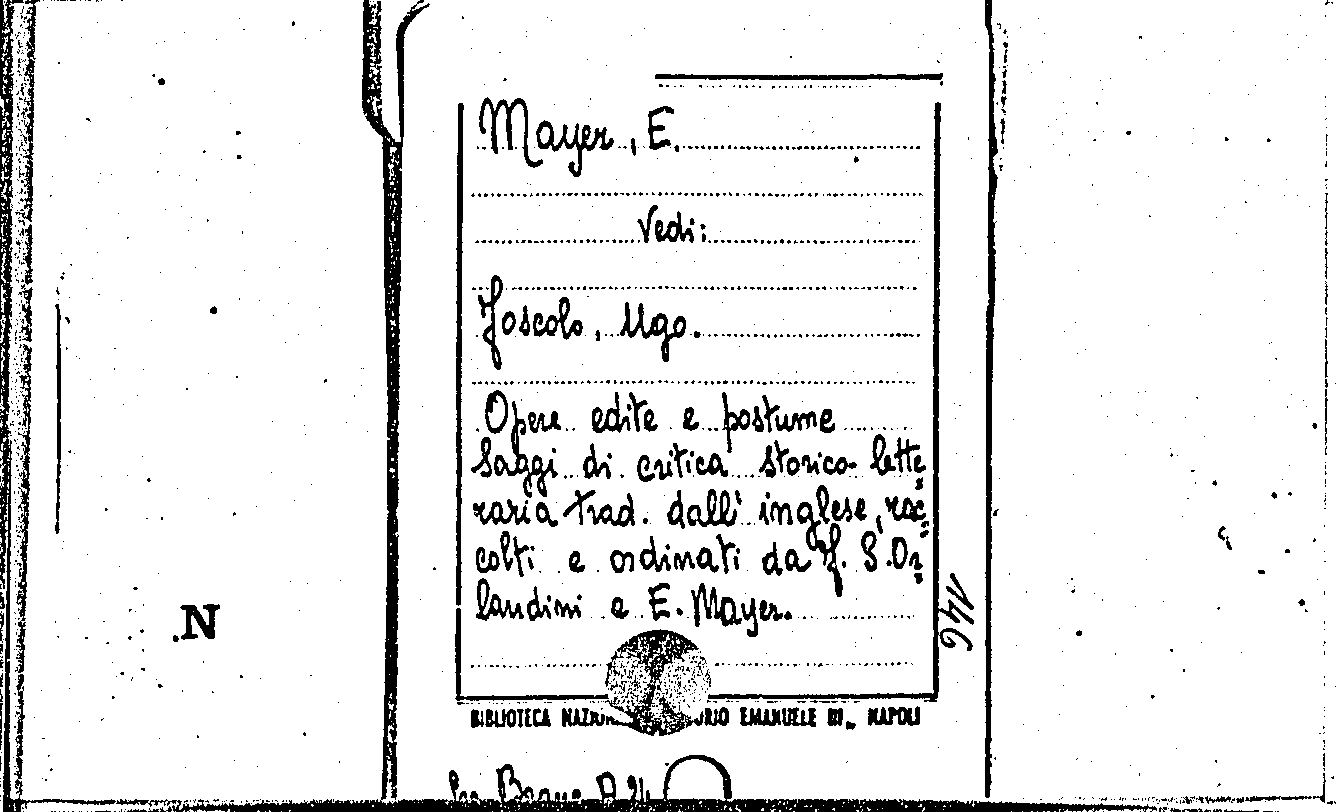 Mayer, E.
Vedi:
Foscolo, Ugo.
Opere edite e postume
Saggi di critica storico-lette
raria trad. dall' inglese, rac
colti e ordinati da F. S. Or
landini e E. Mayer.
146
N
BIBLIOTECA EMANUELE III„ NAPOLI